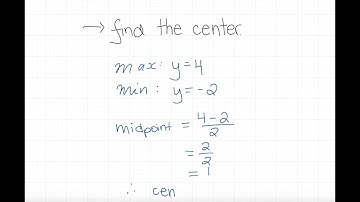 → find the center.
max: y=4
min: y=-2
midpoint = 4-2/2
= 2/2
= 1
∴ cen